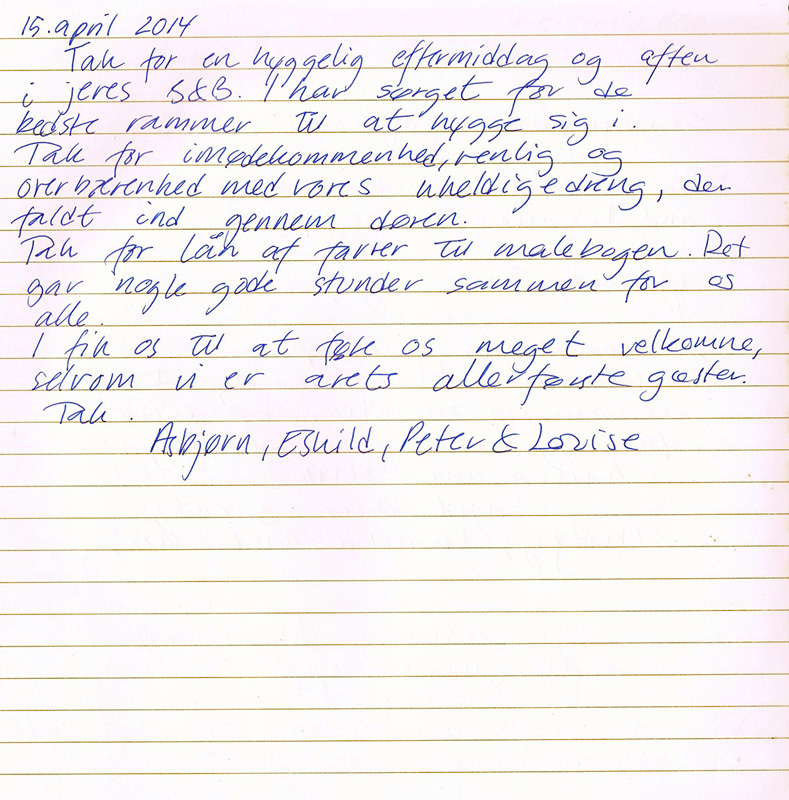 15. april 2014
Tak for en hyggelig eftermiddag og aften
i jeres B&B. I har sørget for de
bedste rammer til at hygge sig i.
Tak for imødekommenhed, venlig og
overbærenhed med vores uheldige dreng, der
faldt ind gennem døren.
Tak for lån af farver til malebogen. Det
gav nogle gode stunder sammen for os
alle.
I fik os til at føle os meget velkomne,
selvom vi er årets allerførste gæster.
Tak.
Asbjørn, Eskild, Peter & Lovise